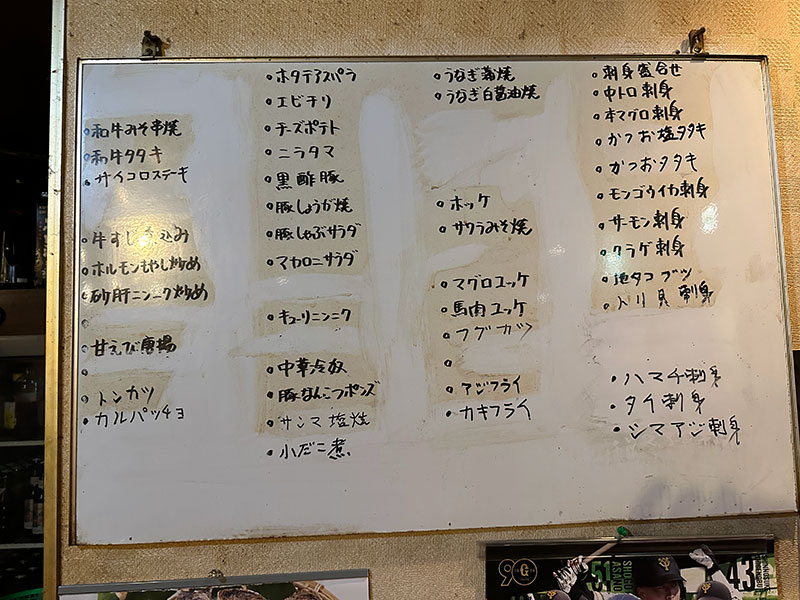 和牛みそ串焼
和牛タタキ
サイコロステーキ
牛すじ込み
ホルモンもやし炒め
砂肝ニンニク炒め
甘えび唐揚
トンカツ
カルパッチョ
ホタテアスパラ
エビチリ
チーズポテト
ニラタマ
黒酢豚
豚しょうが焼
豚しゃぶサラダ
マカロニサラダ
キューリニンニク
中華冷奴
豚なんこつポンズ
サンマ塩焼
小だこ煮
うなぎ蒲焼
うなぎ白醤油焼
ホッケ
サワラみそ焼
マグロユッケ
馬肉ユッケ
フグガツ
アジフライ
カキフライ
刺身盛合せ
中トロ刺身
本マグロ刺身
かつお塩タタキ
かつおタタキ
モンゴウイカ刺身
サーモン刺身
クラゲ刺身
地タコブツ
刺身
ハマチ刺身
タイ刺身
シマアジ刺身
90
G
51
SHUN
ASANO
43